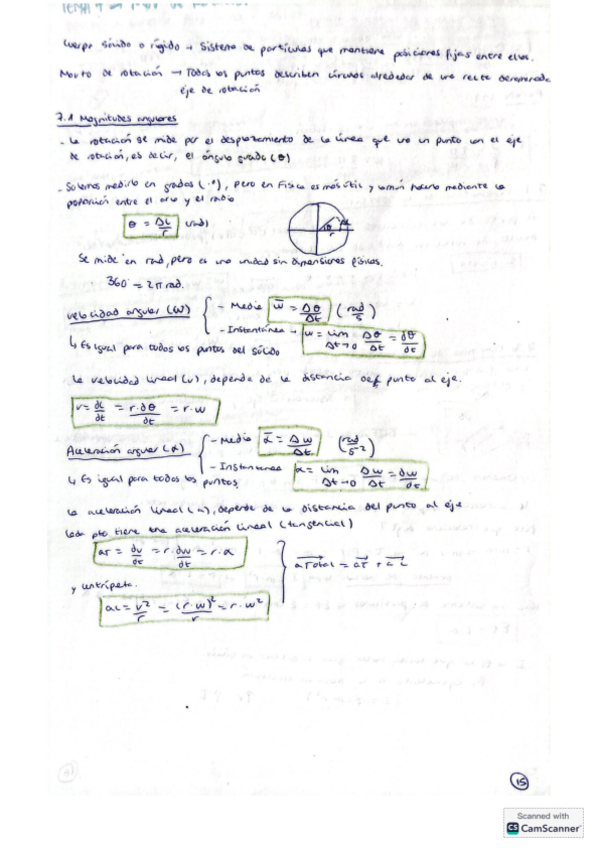 TEMA 7
Cuerpo sólido o rígido → Sistema de partículas que mantiene posiciones fijas entre ellas.
Movto de rotación → Todos los puntos describen círculos alrededor de una recta denominada
eje de rotación
7.1 Magnitudes angulares
- La rotación se mide por el desplazamiento de la línea que une un punto con el eje
de rotación, es decir, el ángulo girado (θ)
- Solemos medirlo en grados (·°), pero en Física es más útil y común hacerlo mediante la
proporción entre el arco y el radio
θ = Δl/r (rad)
θ r Δl
Se mide en rad, pero es una unidad sin dimensiones físicas.
360° = 2π rad.
Velocidad angular (W) { - Media w̄ = Δθ/Δt (rad/s)
- Instantánea → w = lim Δt→0 Δθ/Δt = dθ/dt
↳ Es igual para todos los puntos del sólido
La velocidad lineal (v), depende de la distancia del punto al eje.
v = dl/dt = r·dθ/dt = r·w
Aceleración angular (α) { - Media ᾱ = Δw/Δt (rad/s^2)
- Instantánea α = lim Δt→0 Δw/Δt = dw/dt
↳ Es igual para todos los puntos
La aceleración lineal (a), depende de la distancia del punto al eje
Cada pto tiene una aceleración lineal (tangencial)
aT = dv/dt = r·dw/dt = r·α } a⃗Total = a⃗T + a⃗c
y centrípeta.
ac = v²/r = (r·w)²/r = r·w²
15
Scanned with
CS CamScanner